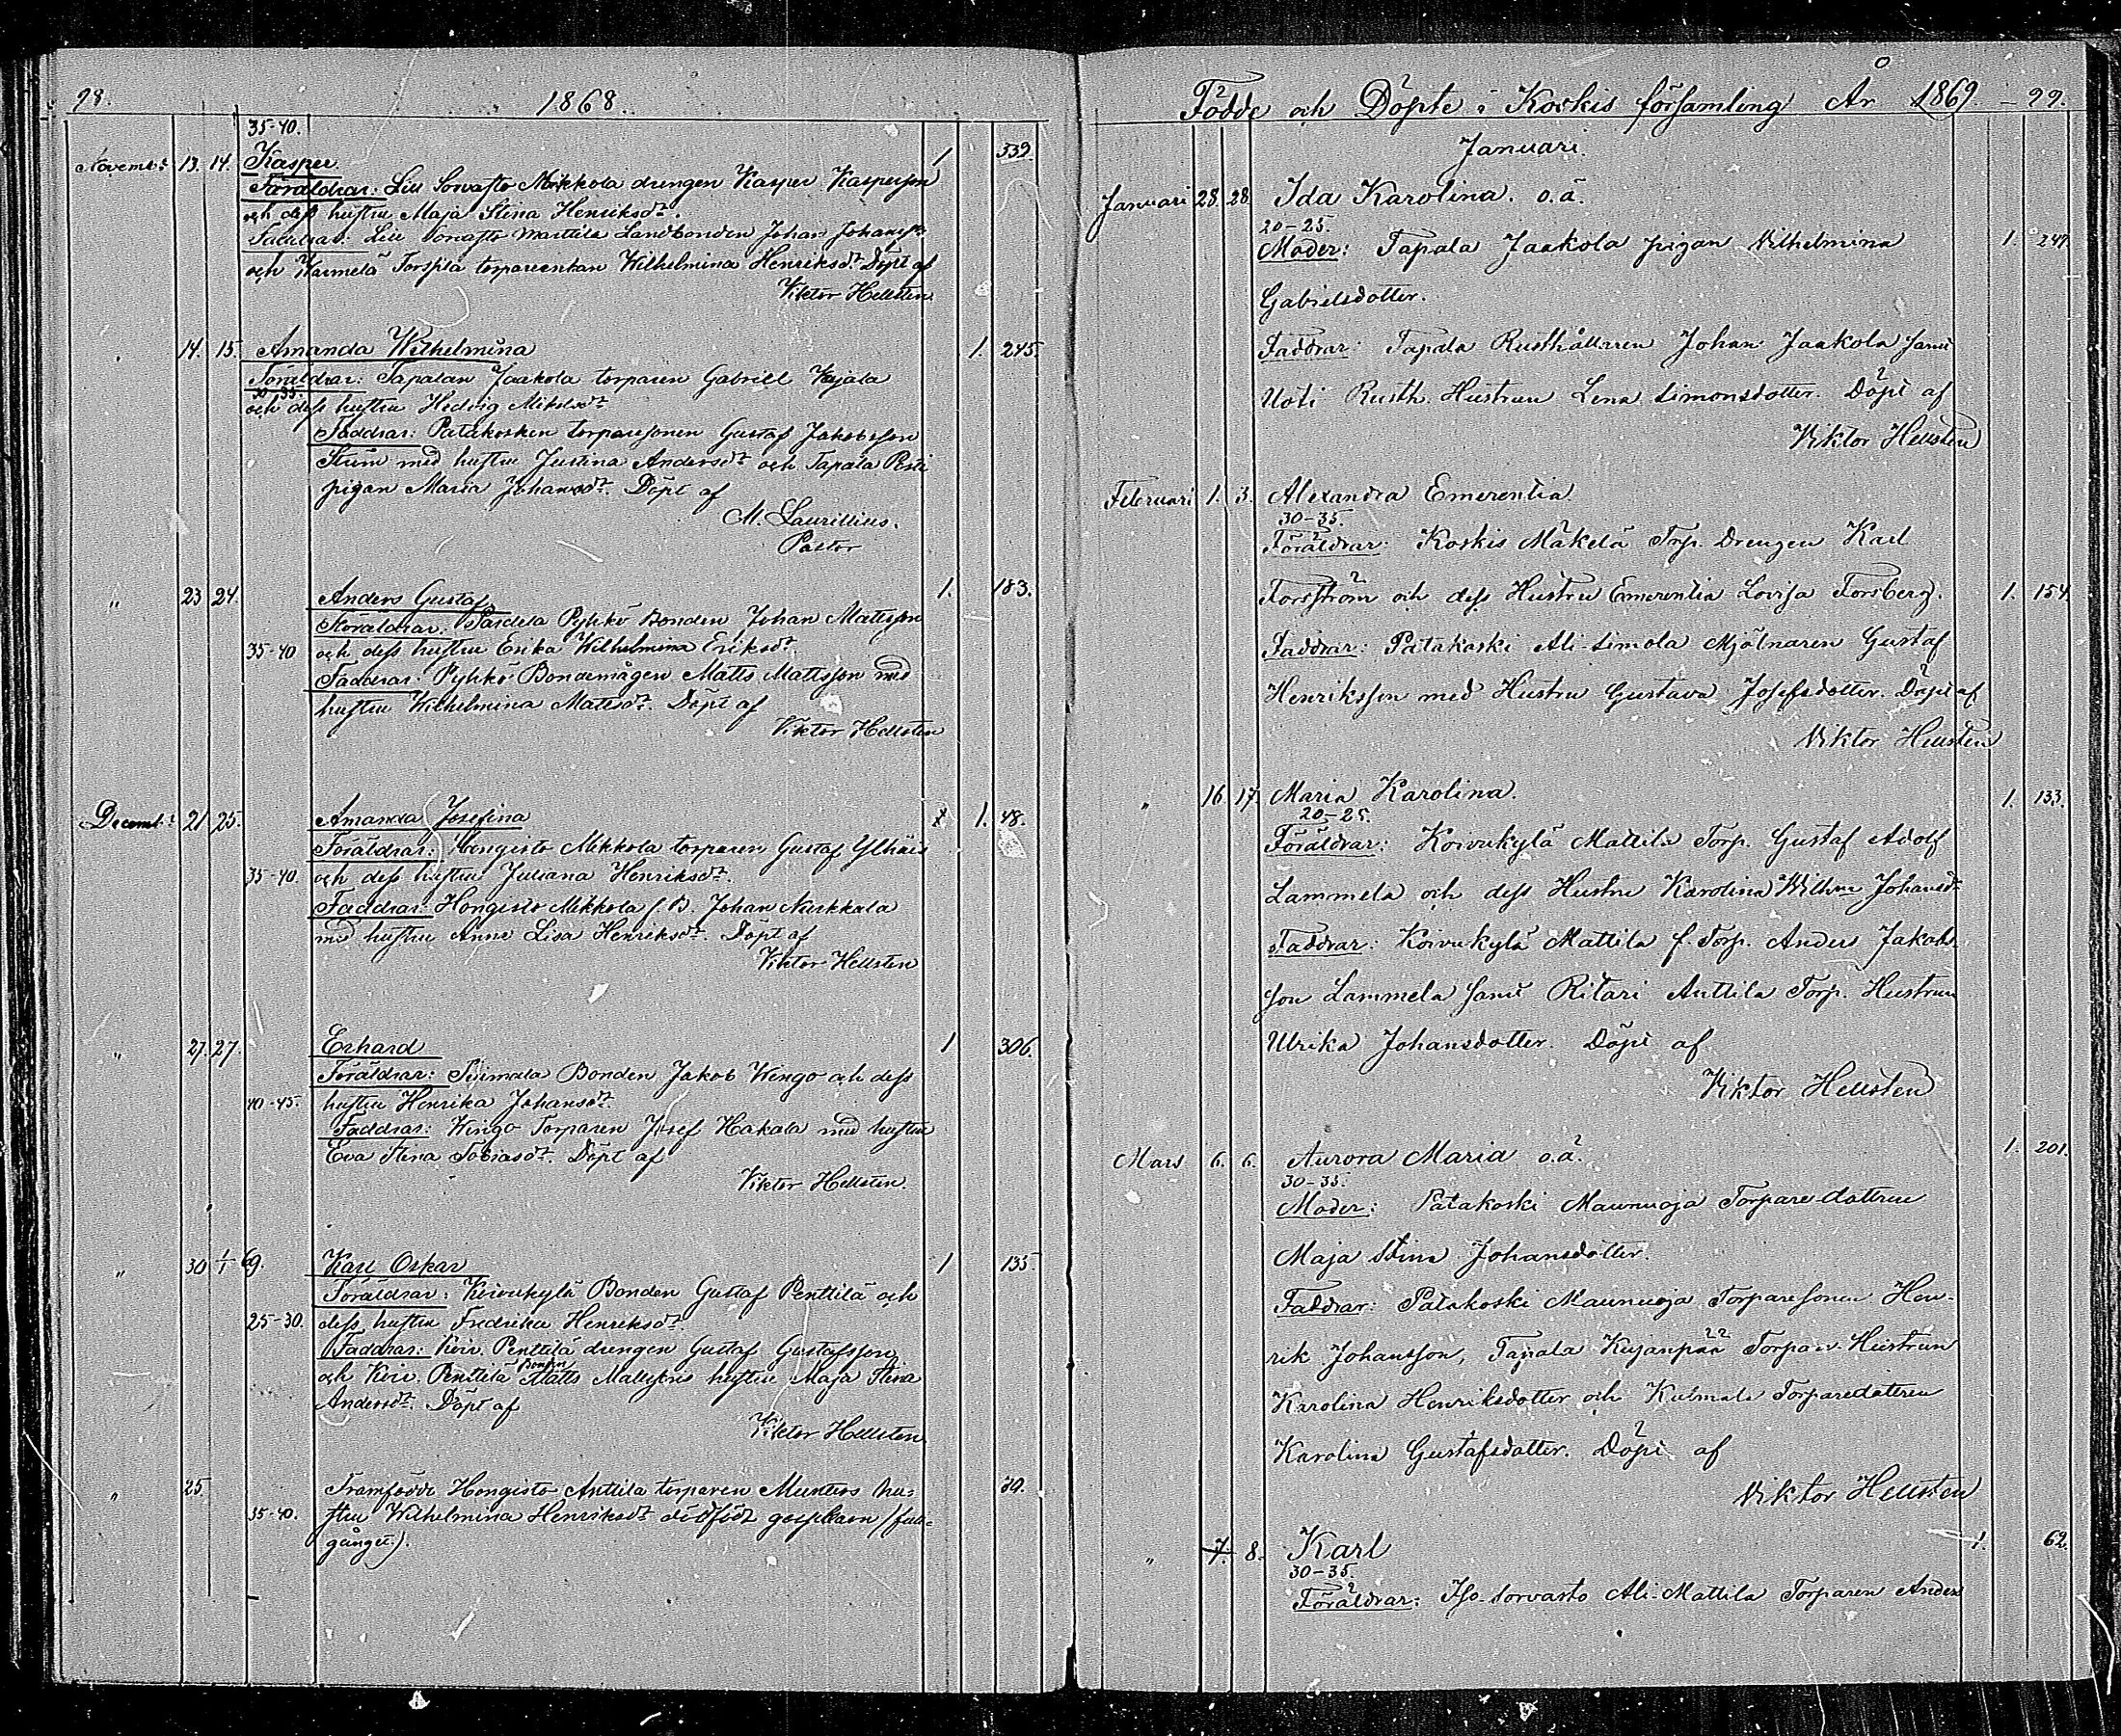 98. 1868.
35-40.
Novembr 13. 14. Kasper 1 339.
Föräldrar: Lill Sorvasto Mikkola drengen Kasper Kaspersson
och dess hustru Maja Stina Henriksdr.
Faddrar: Lill Sorvasto Mattila Landbonden Johan Johansson
och torpareenkan Wilhelmina Henriksdr. Döpt af
Viktor Hellsten
" 14. 15. Amanda Wilhelmina 1. 245.
Föräldrar: Tapalan Jaakola torparen Gabriel Kujala
30-35.
och dess hustru Hedvig Mikelsdr
Faddrar: Patakosken torparesonen Gustaf Jakobsson
Ström med hustru Justina Andersdr och Tapala
pigan Maria Johansdr. Döpt af
M. Laurillius.
Pastor
" 23 24. Anders Gustaf 1. 183.
Föräldrar: Pyhkö Bonden Johan Mattsson
35-40 och dess hustru Erika Wilhelmina Eriksdr.
Faddrar: Pyhkö Bondemågen Matts Mattsson med
hustru Wilhelmina Matsdr. Döpt af
Viktor Hellsten
Decembr 21 25. Amanda Josefina 1. 48.
Föräldrar: Hongisto Mikkola torparen Gustaf Ylhäis
35-40. och dess hustru Juliana Henriksdr.
Faddrar: Hongisto Mikkola f.B. Johan Nurkkala
med hustru Anna Lisa Henriksdr. Döpt af
Viktor Hellsten
" 27. 27. Erhard 1 306.
Föräldrar: Bonden Jakob Wengo och dess
40-45. hustru Henrika Johansdr.
Faddrar: Wengo Torparen Josef Hakala med hustru
Eva Stina Tobiasdr. Döpt af
Viktor Hellsten.
" 30 1/1 69. Karl Oskar 1 135.
Föräldrar: Koivukylä Bonden Gustaf Penttilä och
25-30. dess hustru Fredrika Henriksdr.
Faddrar: Koiv. Penttilä drengen Gustaf Gustafsson
och Koiv. Penttilä Bonden Matts Mattssons hustru Maja Stina
Andersdr. Döpt af
Viktor Hellsten.
" 25. Framfödde Hongisto Anttila torparen Munters hu-
35-40. stru Wilhelmina Henriksdr dödfödt gossebarn (full-
gånget).
Födde och Döpte i Koskis församling År 1869. 99.
Januari.
Januari 28. 28. Ida Karolina. o.ä.
20-25.
Moder: Tapala Jaakola pigan Wilhelmina 1. 247.
Gabrielsdotter.
Faddrar: Tapala Rusthållaren Johan Jaakola samt
Uoti Rusth. Hustrun Lena Simonsdotter. Döpt af
Viktor Hellsten
Februari 1. 3. Alexandra Emerentia
30-35.
Föräldrar: Koskis Mäkelä Torp. Drengen Karl
Forsström och dess Hustru Emerentia Lovisa Forsberg. 1. 154.
Faddrar: Patakoski Ali-Simola Mjölnaren Gustaf
Henriksson med Hustru Gustava Josefsdotter. Döpt af
Viktor Hellsten
" 16. 17. Maria Karolina. 1. 133.
20-25.
Föräldrar: Koivukylä Mattila Torp. Gustaf Adolf
Lammela och dess Hustru Karolina Wilhna Johansdr
Faddrar: Koivukylä Mattila f. Torp. Anders Jakobs-
son Lammela samt Ritari Anttila Torp. Hustrun
Ulrika Johansdotter. Döpt af
Viktor Hellsten
Mars 6. 6. Aurora Maria o.ä. 1. 201.
30-35.
Moder: Patakoski Maunuoja Torparedottren
Maja Stina Johansdotter.
Faddrar: Patakoski Maunuoja Torparesonen Hen-
rik Johansson, Tapala Kujanpää Torpare Hustrun
Karolina Henriksdotter och Kulmala Torparedottren
Karolina Gustafsdotter. Döpt af
Viktor Hellsten
" 7. 8. Karl 1. 62.
30-35.
Föräldrar: Iso-Sorvasto Ali-Mattila Torparen Anders